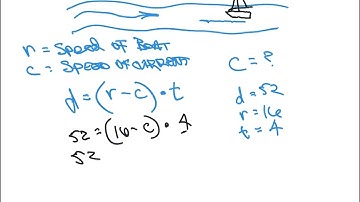 r = Speed of Boat
C = Speed of Current
C = ?
d = (r - c) • t
d = 52
r = 16
t = 4
52 = (16 - c) • 4
52